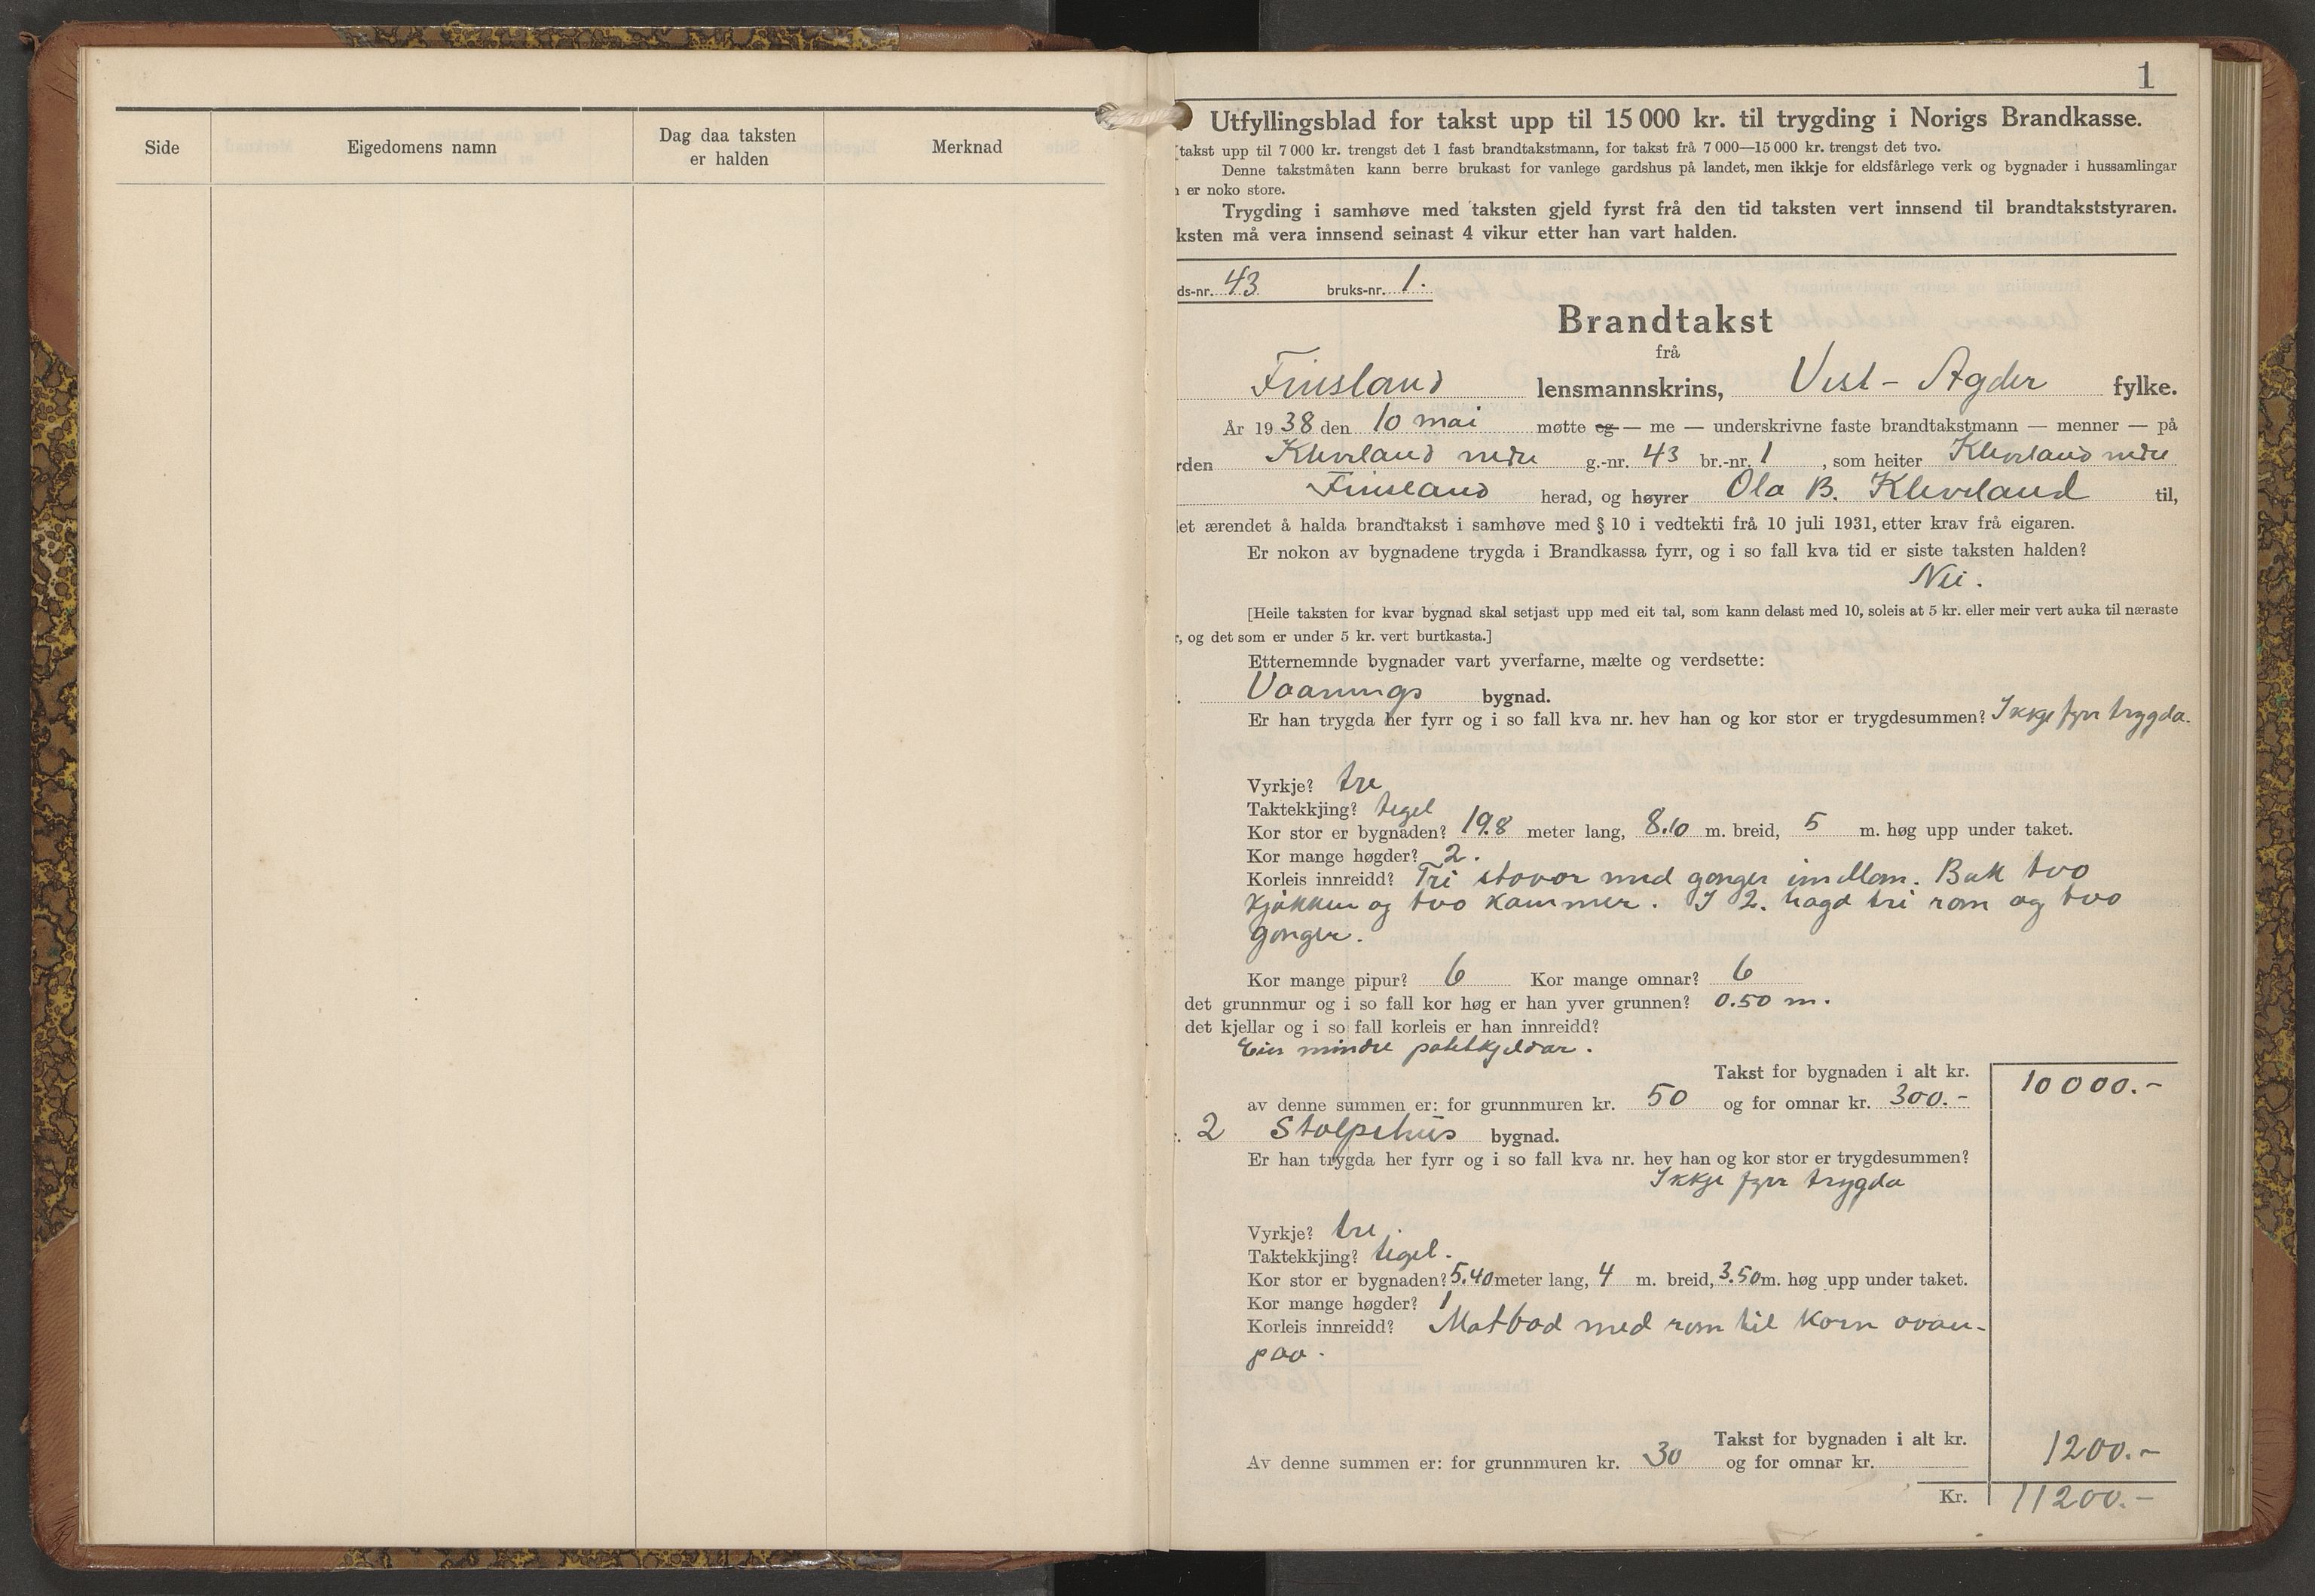 Side Eigedomens namn Dag daa taksten er halden Merknad
1
Utfyllingsblad for takst upp til 15 000 kr. til trygding i Norigs Brandkasse.
takst upp til 7 000 kr. trengst det 1 fast brandtakstmann, for takst frå 7 000—15 000 kr. trengst det tvo.
Denne takstmåten kann berre brukast for vanlege gardshus på landet, men ikkje for eldsfårlege verk og bygnader i hussamlingar
er noko store.
Trygding i samhøve med taksten gjeld fyrst frå den tid taksten vert innsend til brandtakststyraren.
ksten må vera innsend seinast 4 vikur etter han vart halden.
ds-nr. 43 bruks-nr. 1.
Brandtakst
frå
Finsland lensmannskrins, Vest-Agder fylke.
År 1938 den 10 mai møtte eg — me — underskrivne faste brandtakstmann — menner — på
rden Kleveland nedre g.-nr. 43 br.-nr. 1 , som heiter Kleveland nedre
Finsland herad, og høyrer Ola B. Kleveland til,
et ærendet å halda brandtakst i samhøve med § 10 i vedtekti frå 10 juli 1931, etter krav frå eigaren.
Er nokon av bygnadene trygda i Brandkassa fyrr, og i so fall kva tid er siste taksten halden?
Nei.
[Heile taksten for kvar bygnad skal setjast upp med eit tal, som kann delast med 10, soleis at 5 kr. eller meir vert auka til næraste
r, og det som er under 5 kr. vert burtkasta.]
Etternemnde bygnader vart yverfarne, mælte og verdsette:
Vaanings bygnad.
Er han trygda her fyrr og i so fall kva nr. hev han og kor stor er trygdesummen? Ikkje fyrr trygda.
Vyrkje? tre
Taktekkjing? tegel
Kor stor er bygnaden? 19.8 meter lang, 8.10 m. breid, 5 m. høg upp under taket.
Kor mange høgder? 2.
Korleis innreidd? Tri stovor med gonger imellom. Bak tvo
kjøkken og tvo kammer. I 2. høgd tri rom og tvo
gonger.
Kor mange pipur? 6 Kor mange omnar? 6
det grunnmur og i so fall kor høg er han yver grunnen? 0.50 m.
det kjellar og i so fall korleis er han innreidd?
Ein mindre potetkjeldar.
Takst for bygnaden i alt kr. 10000.-
av denne summen er: for grunnmuren kr. 50 og for omnar kr. 300.-
2 Stolpehus bygnad.
Er han trygda her fyrr og i so fall kva nr. hev han og kor stor er trygdesummen?
Ikkje fyrr trygda
Vyrkje? tre.
Taktekkjing? tegel.
Kor stor er bygnaden? 5.40 meter lang, 4 m. breid, 3.50 m. høg upp under taket.
Kor mange høgder? 1
Korleis innreidd? Matbod med rom til korn ovan-
paa.
Takst for bygnaden i alt kr. 1200.-
Av denne summen er: for grunnmuren kr. 30 og for omnar kr.
Kr. 11200.-